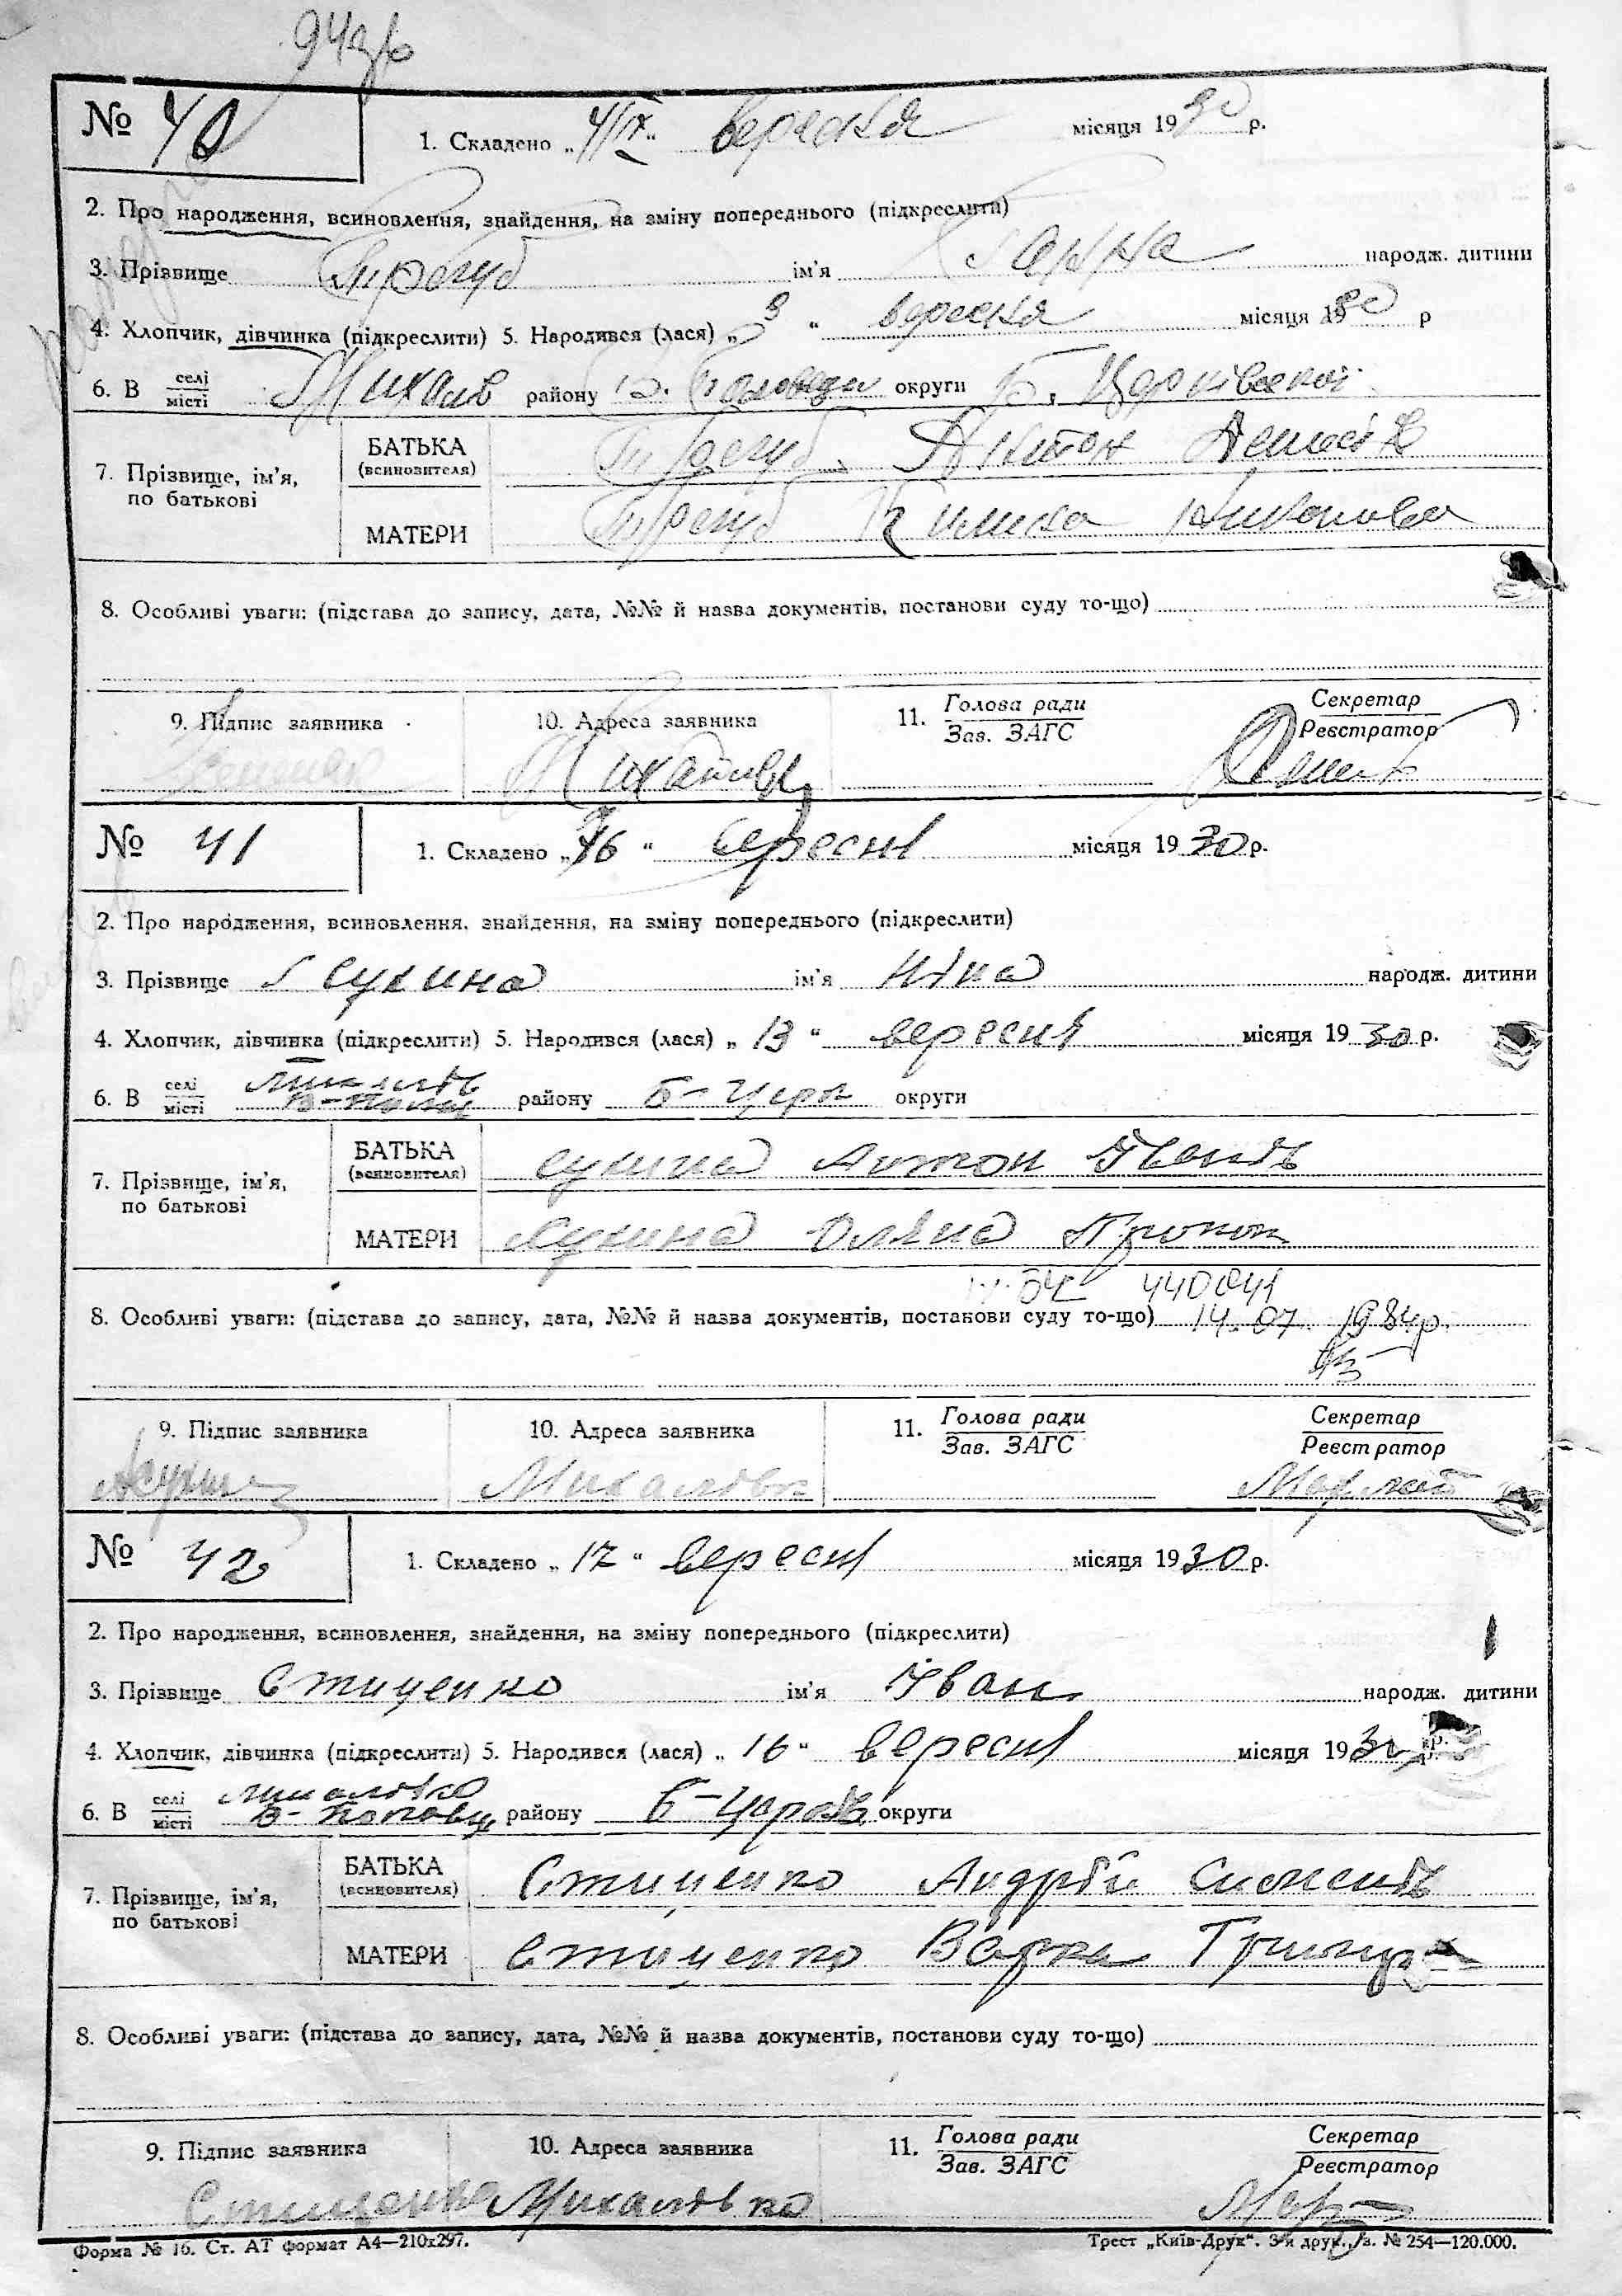 № 40
1. Складено „4/IX“ вересня місяця 1930 р.
2. Про народження, всиновлення, знайдення, на зміну попереднього (підкреслити)
3. Прізвище Трегуб ім'я Ганна народж. дитини
4. Хлопчик, дівчинка (підкреслити) 5. Народився (лася) „3“ вересня місяця 1930 р
6. В селі/місті району В. Половеци округи Б. Церківської
7. Прізвище, ім'я, по батькові
БАТЬКА (всиновителя) Трегуб Антон
МАТЕРИ Трегуб Килина
8. Особливі уваги: (підстава до запису, дата, №№ й назва документів, постанови суду то-що)
9. Підпис заявника 10. Адреса заявника 11. Голова ради/Зав. ЗАГС Секретар/Реєстратор
№ 41
1. Складено „16“ вересня місяця 1930 р.
2. Про народження, всиновлення, знайдення, на зміну попереднього (підкреслити)
3. Прізвище Сукина ім'я Ніна народж. дитини
4. Хлопчик, дівчинка (підкреслити) 5. Народився (лася) „13“ вересня місяця 1930 р.
6. В селі/місті району Б-Церк округи
7. Прізвище, ім'я, по батькові
БАТЬКА (всиновителя) Сукина Антон Іванів
МАТЕРИ Сукина Оляна Прокоп
440041
8. Особливі уваги: (підстава до запису, дата, №№ й назва документів, постанови суду то-що) 14.07. 1984р.
9. Підпис заявника 10. Адреса заявника 11. Голова ради/Зав. ЗАГС Секретар/Реєстратор
Михалівка
№ 42
1. Складено „17“ вересня місяця 1930 р.
2. Про народження, всиновлення, знайдення, на зміну попереднього (підкреслити)
3. Прізвище Стиценко ім'я Іван народж. дитини
4. Хлопчик, дівчинка (підкреслити) 5. Народився (лася) „16“ вересня місяця 1930 р.
6. В селі/місті Михалівка району Б-Церків округи
7. Прізвище, ім'я, по батькові
БАТЬКА (всиновителя) Стиценко Андрій Семенів
МАТЕРИ Стиценко Варка Григор
8. Особливі уваги: (підстава до запису, дата, №№ й назва документів, постанови суду то-що)
9. Підпис заявника 10. Адреса заявника 11. Голова ради/Зав. ЗАГС Секретар/Реєстратор
Стиценко Михалівка
Форма № 16. Ст. АТ формат А4—210х297. Трест „Київ-Друк“. 3-я друк. Зз. № 254—120.000.